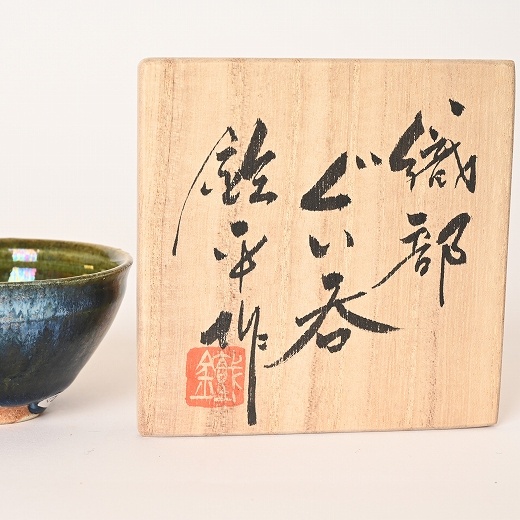 織部
ぐい呑
鈴平作